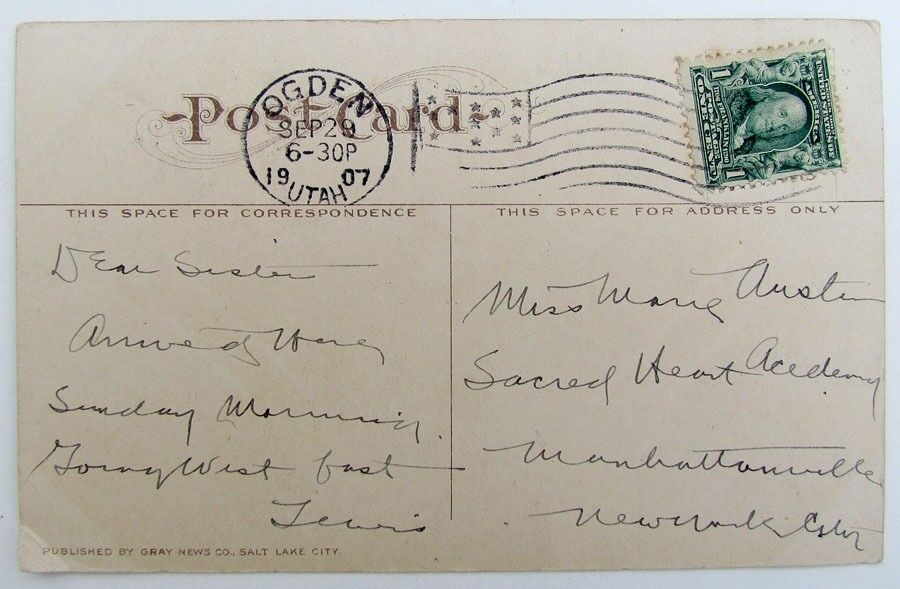 Post Card
OGDEN
SEP 29
6-30P
19 07
UTAH
1 1
THIS SPACE FOR CORRESPONDENCE
THIS SPACE FOR ADDRESS ONLY
Dear Sister
Arrived Here
Sunday Morning.
Going West fast
Lewis
Miss Marie Austin
Sacred Heart Acedemy
Manhattanville
New York City
PUBLISHED BY GRAY NEWS CO., SALT LAKE CITY.